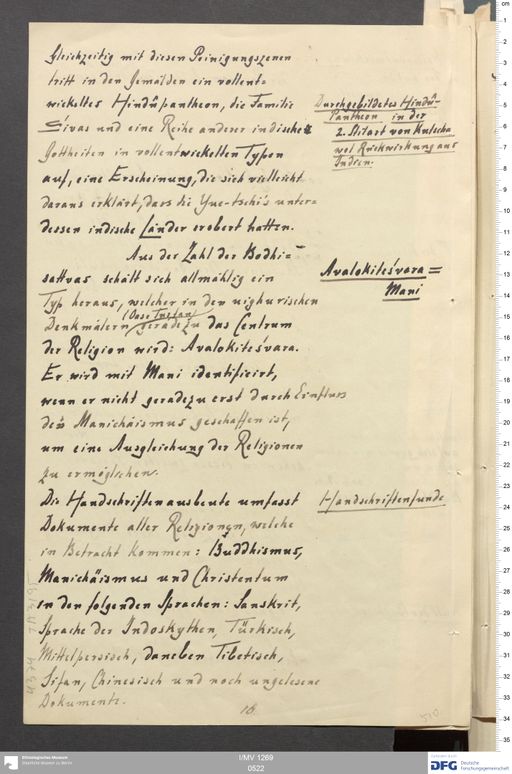 Gleichzeitig mit diesen Peinigungszenen
tritt in den Gemälden ein vollent=
wickeltes Hindûpantheon, die Familie
Śivas und eine Reihe anderer indischer
Gottheiten in vollentwickelten Typen
auf, eine Erscheinung, die sich vielleicht
daraus erklärt, dass die Yue-tschi's unter=
dessen indische Länder erobert hatten.
Aus der Zahl der Bodhi=
sattvas schält sich allmählig ein
Typ heraus, welcher in den uighurischen
(Oase Turfan)
Denkmälern geradezu das Centrum
der Religion wird: Avalokiteśvara.
Er wird mit Mani identificirt,
wenn er nicht geradezu erst durch Einfluss
des Manichäismus geschaffen ist,
um eine Ausgleichung der Religionen
zu ermöglichen.
Die Handschriftenausbeute umfasst
Dokumente aller Religionen, welche
in Betracht kommen: Buddhismus,
Manichäismus und Christentum
in den folgenden Sprachen: Sanskrit,
Sprache der Indoskythen, Türkisch,
Mittelpersisch, daneben Tibetisch,
Sifan, Chinesisch und noch ungelesene
Dokumente.
Durchgebildetes Hindû-
Pantheon in der
2. Stilart von Kutscha
wol Rückwirkung aus
Indien.
Avalokiteśvara =
Mani
Handschriftenfunde
16.
510
Ethnologisches Museum
Staatliche Museen zu Berlin
I/MV 1269
0522
DFG Deutsche
Forschungsgemeinschaft